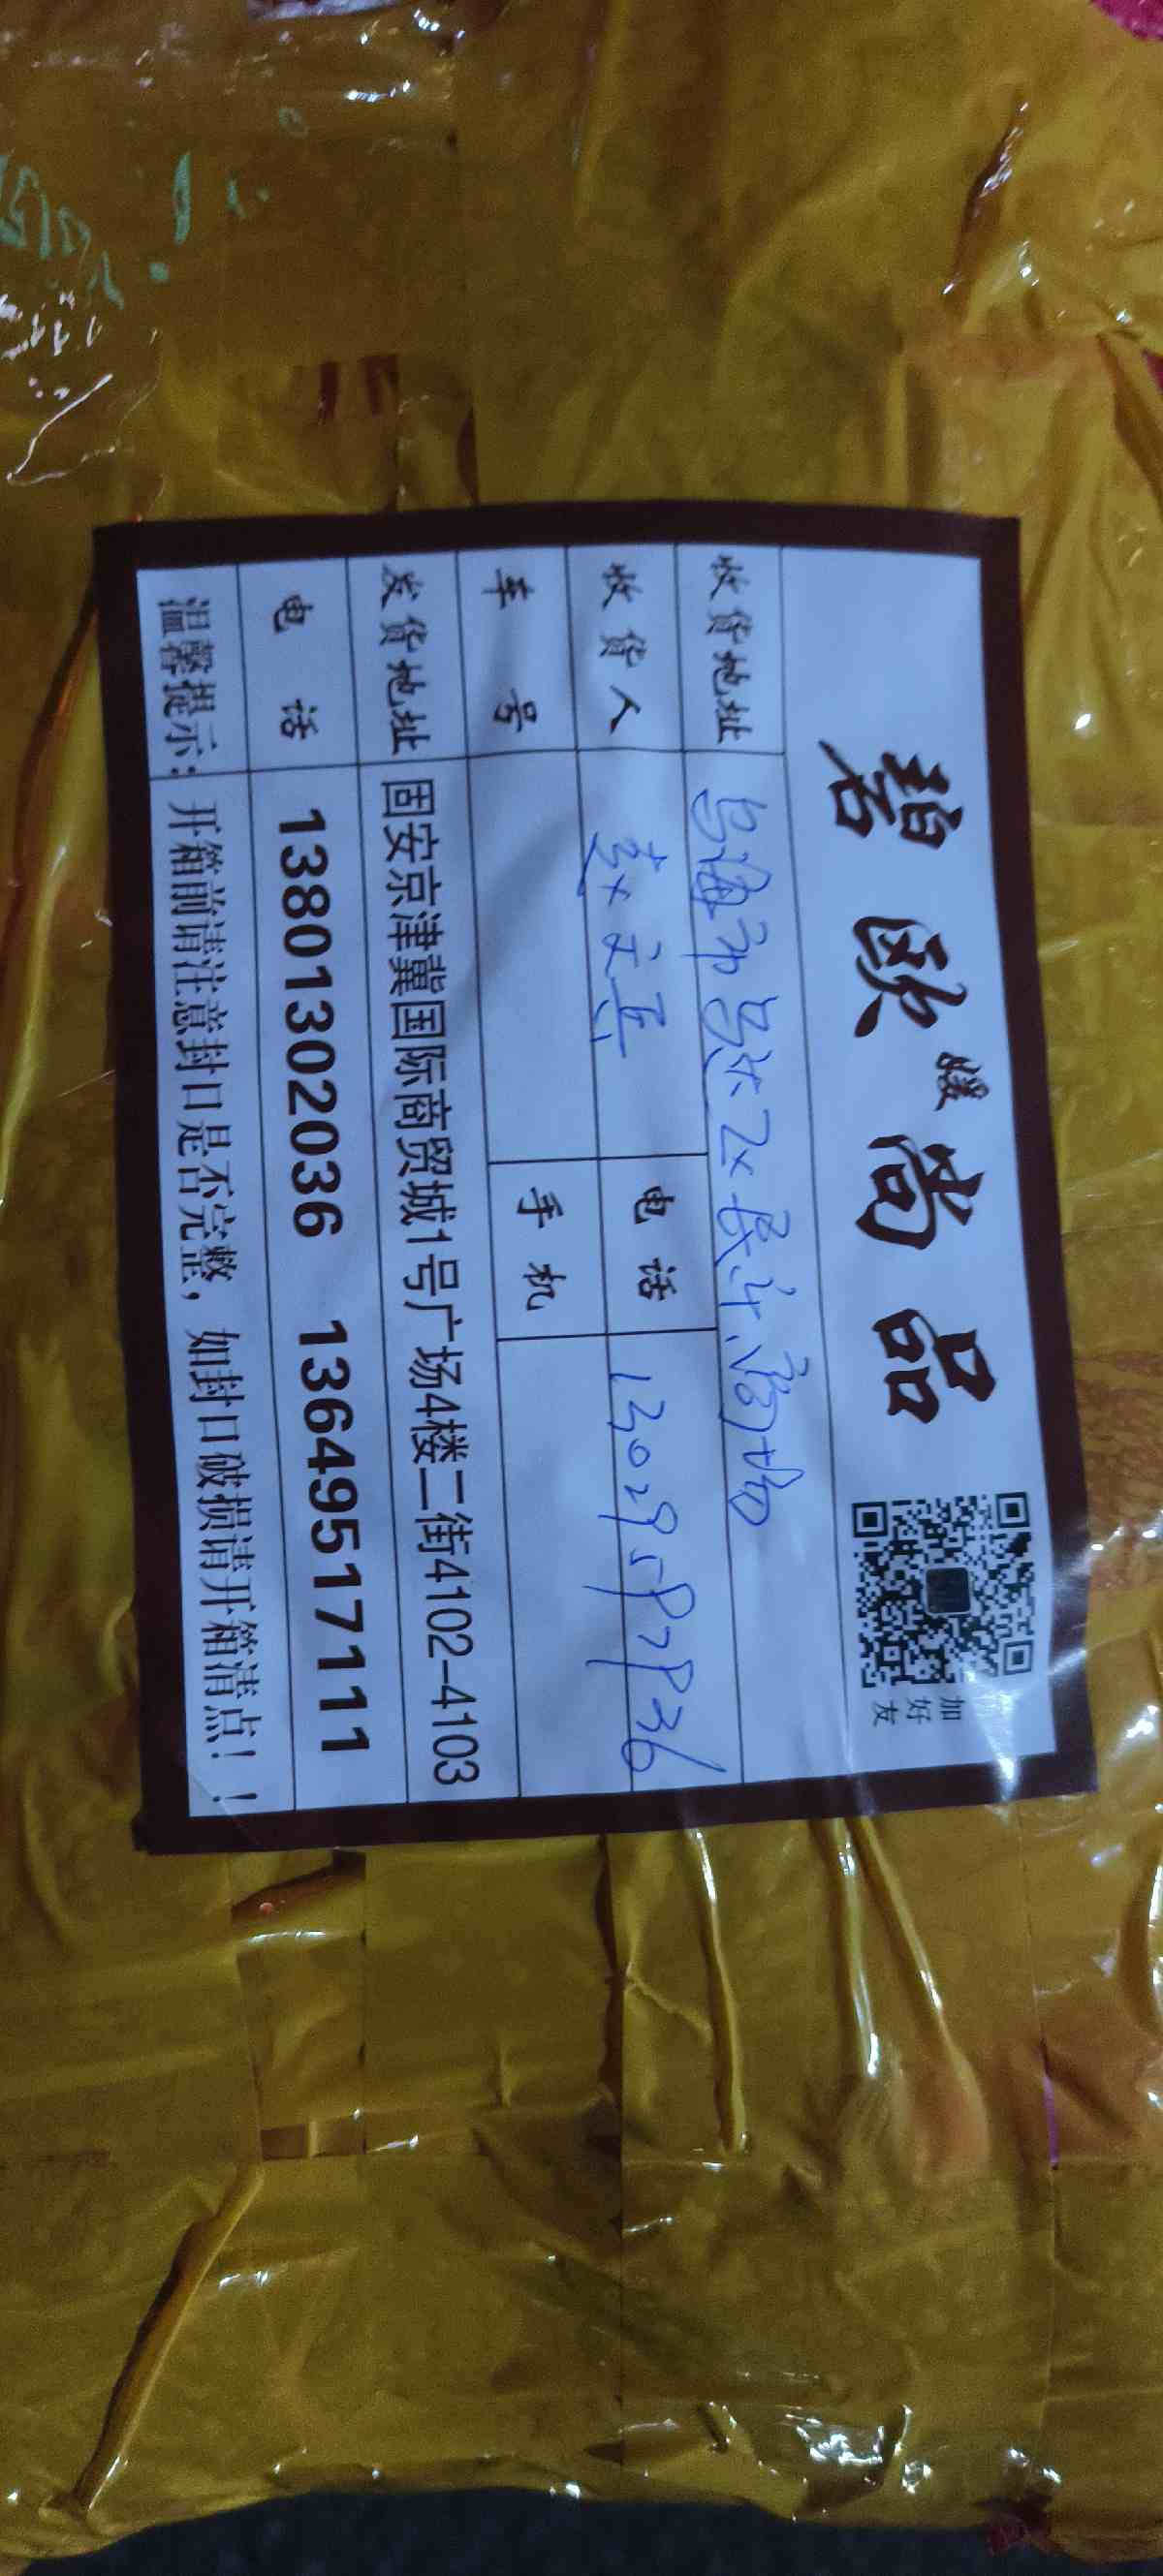 碧欧媛尚品
加好友
收货地址 乌海市乌达区长青商场
收货人 赵文兵 电话
车号 手机
发货地址 固安京津冀国际商贸城1号广场4楼二街4102-4103
电话 13801302036 13649517111
温馨提示：开箱前请注意封口是否完整，如封口破损请开箱清点！！